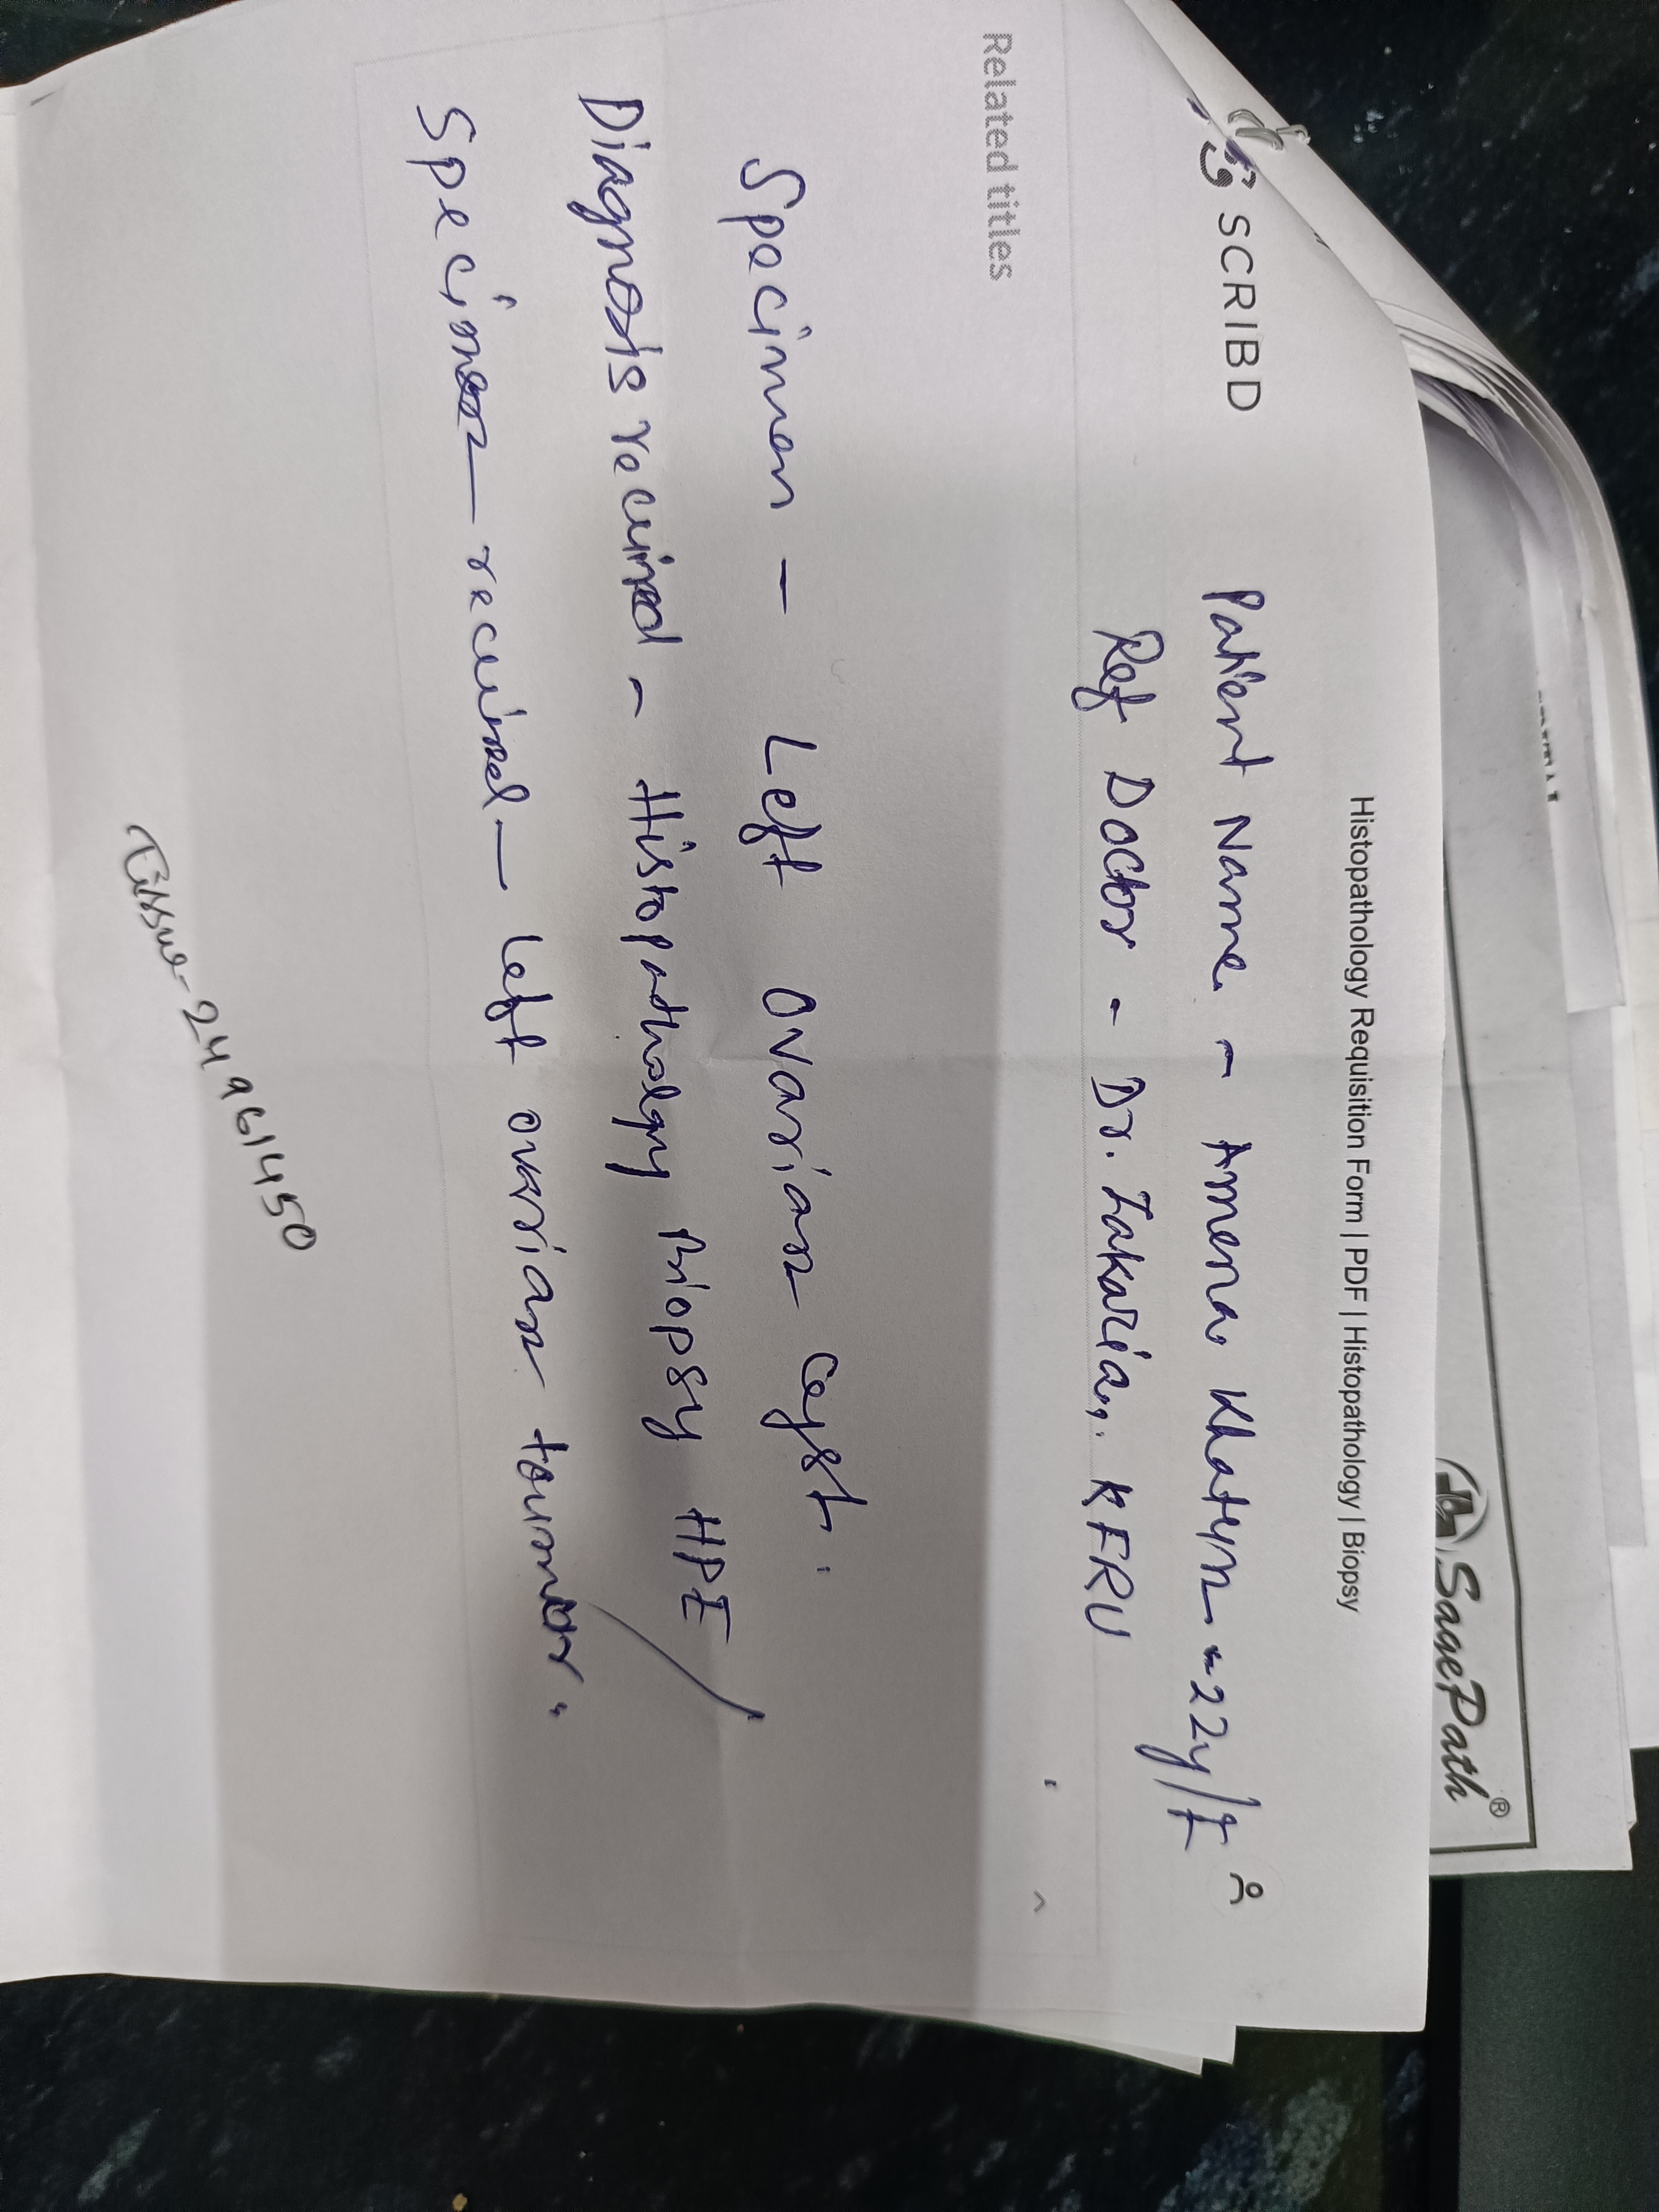 SagePath®
Histopathology Requisition Form | PDF | Histopathology | Biopsy
SCRIBD
Patient Name - Amena Khatun - 22y/F
Ref Doctor - Dr. Zakaria, KFRU
Related titles
Specimen - Left Ovarian Cyst.
Diagnosis recuired - Histopathology Biopsy HPE/
Specimen recuired - Left ovarian toumor.
Tissue - 24961450